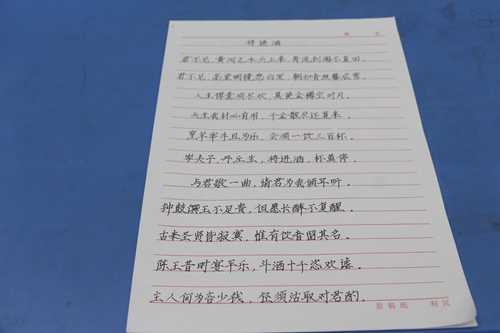 将进酒
君不见,黄河之水天上来,奔流到海不复回。
君不见,高堂明镜悲白发,朝如青丝暮成雪。
人生得意须尽欢,莫使金樽空对月。
天生我材必有用,千金散尽还复来。
烹羊宰牛且为乐,会须一饮三百杯。
岑夫子,丹丘生,将进酒,杯莫停。
与君歌一曲,请君为我倾耳听。
钟鼓馔玉不足贵,但愿长醉不复醒。
古来圣贤皆寂寞,惟有饮者留其名。
陈王昔时宴平乐,斗酒十千恣欢谑。
主人何为言少钱,径须沽取对君酌。
原稿纸